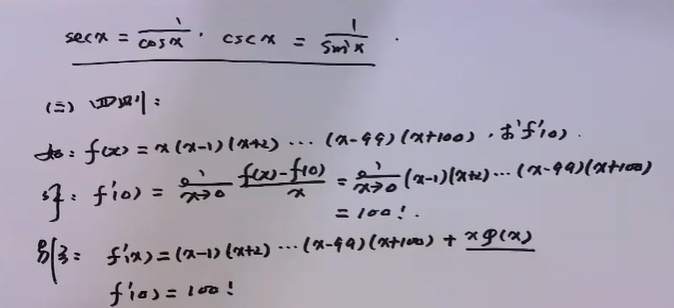 secx = 1/cosx, cscx = 1/sinx.
(二) 四则:
如: f(x) = x(x-1)(x+2)⋯(x-99)(x+100), 求f'(0).
解: f'(0) = lim x→0 (f(x)-f(0))/x = lim x→0 (x-1)(x+2)⋯(x-99)(x+100)
= 100!.
另解: f'(x) = (x-1)(x+2)⋯(x-99)(x+100) + xφ(x)
f'(0) = 100!